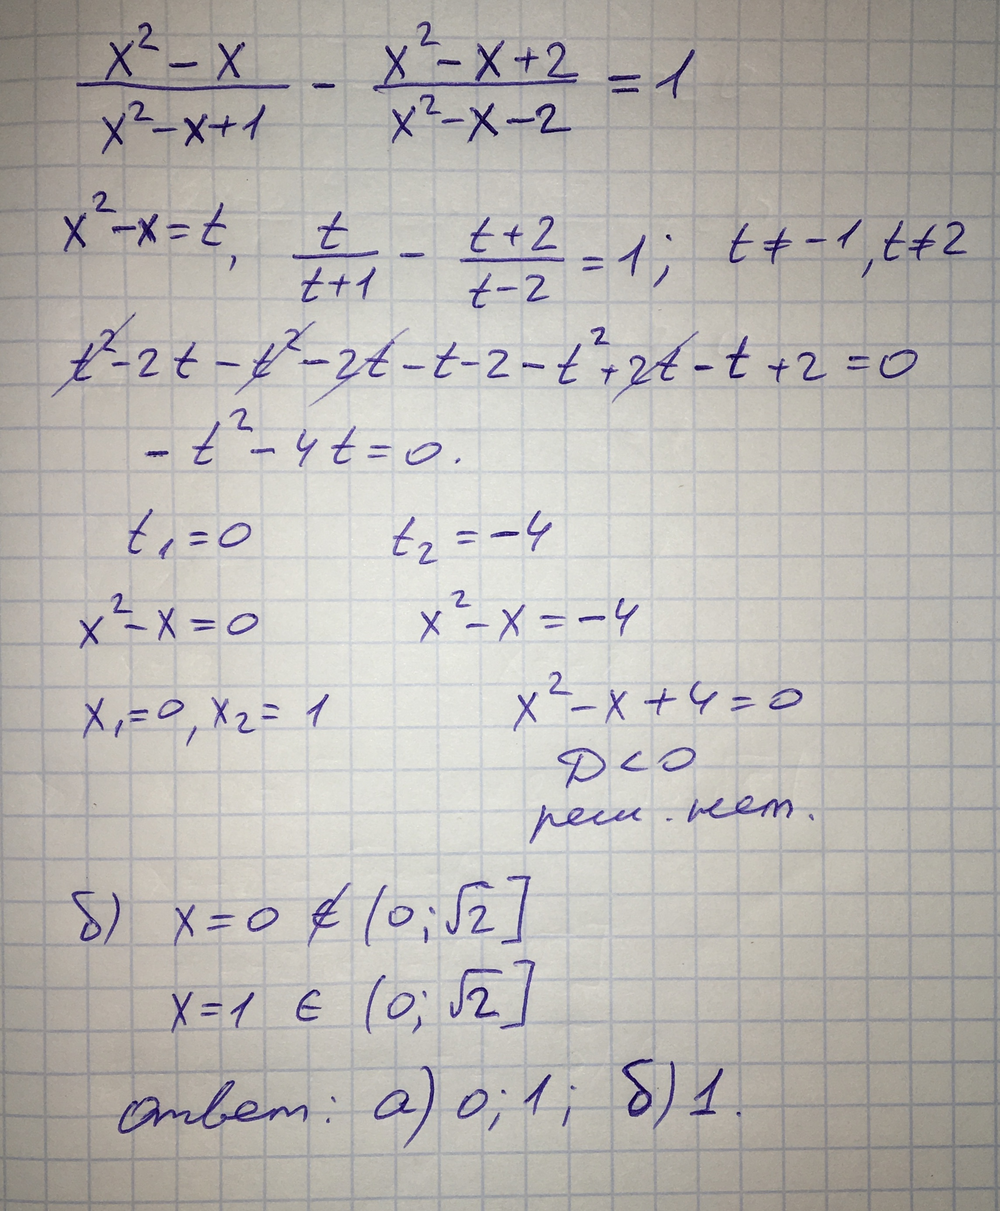 (x² - x)/(x² - x + 1) - (x² - x + 2)/(x² - x - 2) = 1
x² - x = t, t/(t+1) - (t+2)/(t-2) = 1; t ≠ -1, t ≠ 2
t² - 2t - t² - 2t - t - 2 - t² + 2t - t + 2 = 0
- t² - 4t = 0.
t₁ = 0 t₂ = -4
x² - x = 0 x² - x = -4
x₁ = 0, x₂ = 1 x² - x + 4 = 0
D < 0
реш. нет.
б) x = 0 ∉ (0; √2]
x = 1 ∈ (0; √2]
ответ: а) 0; 1; б) 1.